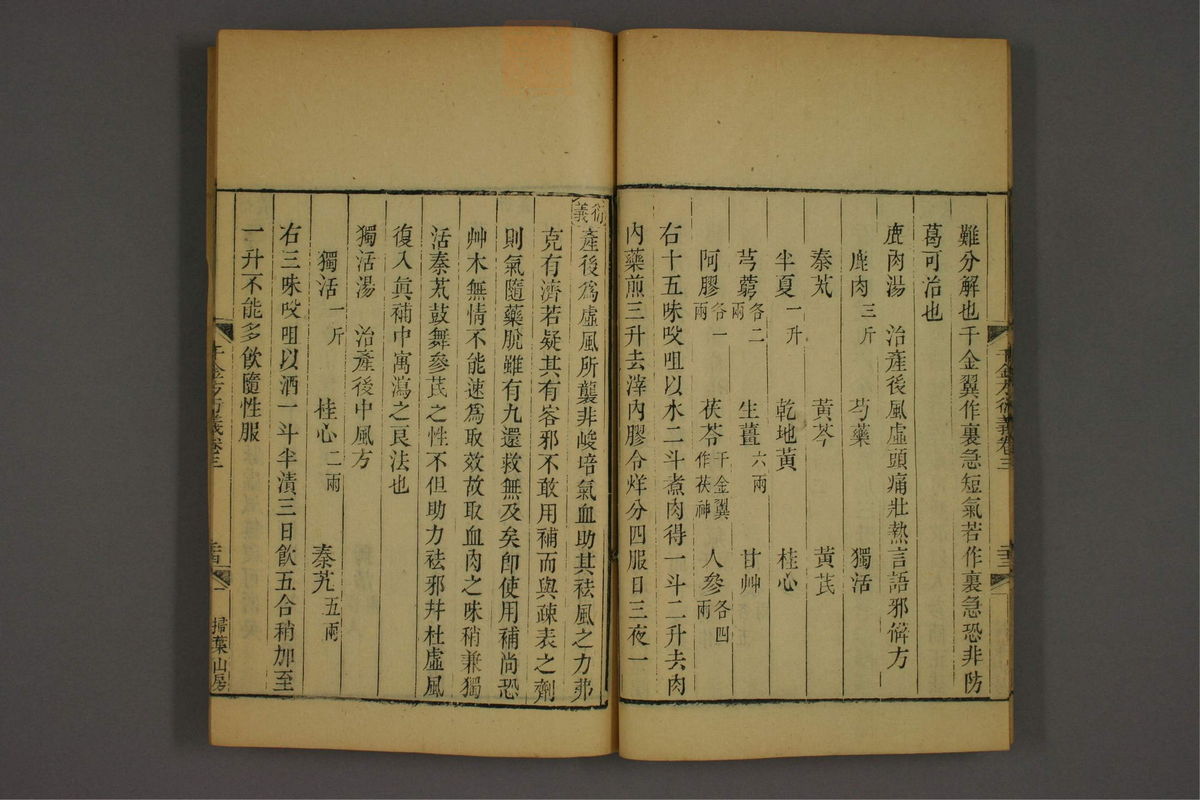 難分解也千金翼作裏急短氣若作裏急恐非防
葛可治也
鹿肉湯　治產後風虛頭痛壯熱言語邪僻方
鹿肉三斤　芍藥　獨活
秦艽　黃芩　黃芪
半夏一升　乾地黃　桂心
芎藭各二兩　生薑六兩　甘艸
阿膠各一兩　茯苓千金翼作茯神　人參各四兩
右十五味㕮咀以水二斗煮肉得一斗二升去肉
內藥煎三升去滓內膠令烊分四服日三夜一
千金方衍義卷三
衍義產後爲虛風所襲非峻培氣血助其祛風之力弗
克有濟若疑其有客邪不敢用補而與疎表之劑
則氣隨藥脫雖有九還救無及矣卽使用補尚恐
艸木無情不能速爲取效故取血肉之味稍兼獨
活秦艽鼓舞參芪之性不但助力祛邪幷杜虛風
復入眞補中寓瀉之良法也
獨活湯　治產後中風方
獨活一斤　桂心二兩　秦艽五兩
右三味㕮咀以酒一斗半漬三日飲五合稍加至
一升不能多飲隨性服
千金方衍義卷三
掃葉山房